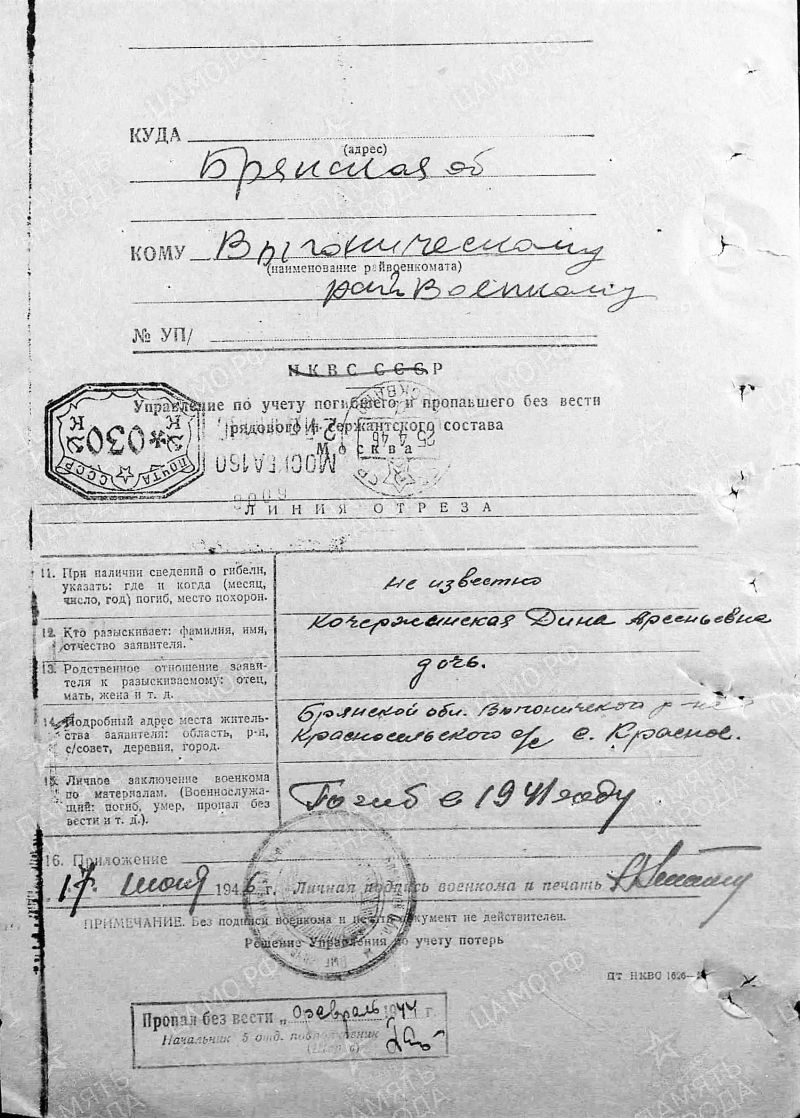 КУДА
(адрес)
Брянская об
КОМУ Выгоническому
(наименование райвоенкомата)
рай Военкому
№ УП/
НКВС СССР
Управление по учету погибшего и пропавшего без вести
рядового и сержантского состава
Москва
ПОЧТА СССР
*030
К К
МОСКВА 160
25.4.46
ЛИНИЯ ОТРЕЗА
11. При наличии сведений о гибели,
указать: где и когда (месяц,
число, год) погиб, место похорон.
не известно
12. Кто разыскивает: фамилия, имя,
отчество заявителя.
Кочержинская Дина Арсеньевна
13. Родственное отношение заяви-
теля к разыскиваемому: отец,
мать, жена и т. д.
дочь.
14. Подробный адрес места житель-
ства заявителя: область, р-н,
с/совет, деревня, город.
Брянской обл. Выгонический р-на
Красносельского с/с с. Красное.
15. Личное заключение военкома
по материалам. (Военнослужа-
щий: погиб, умер, пропал без
вести и т. д.).
Погиб в 1941 году
16. Приложение
17. июня 1946 г. Личная подпись военкома и печать
ПРИМЕЧАНИЕ. Без подписи военкома и печати документ не действителен.
Решение Управления по учету потерь
ЦТ НКВС 1626—
Пропал без вести „ февраль 1944 г.
Начальник 5 отд. подполковник
ЦАМО.РФ
ПАМЯТЬ НАРОДА